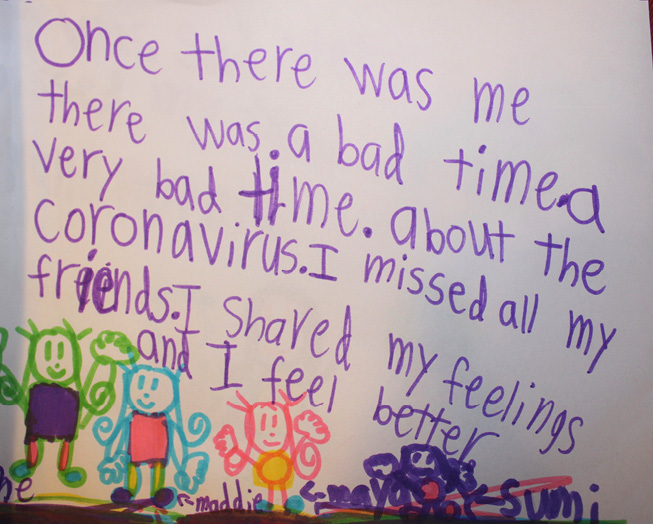 Once there was me
there was. a bad time. a
very bad time. about the
coronavirus. I missed all my
friends. I shared my feelings
and I feel better
maddie maya sumi